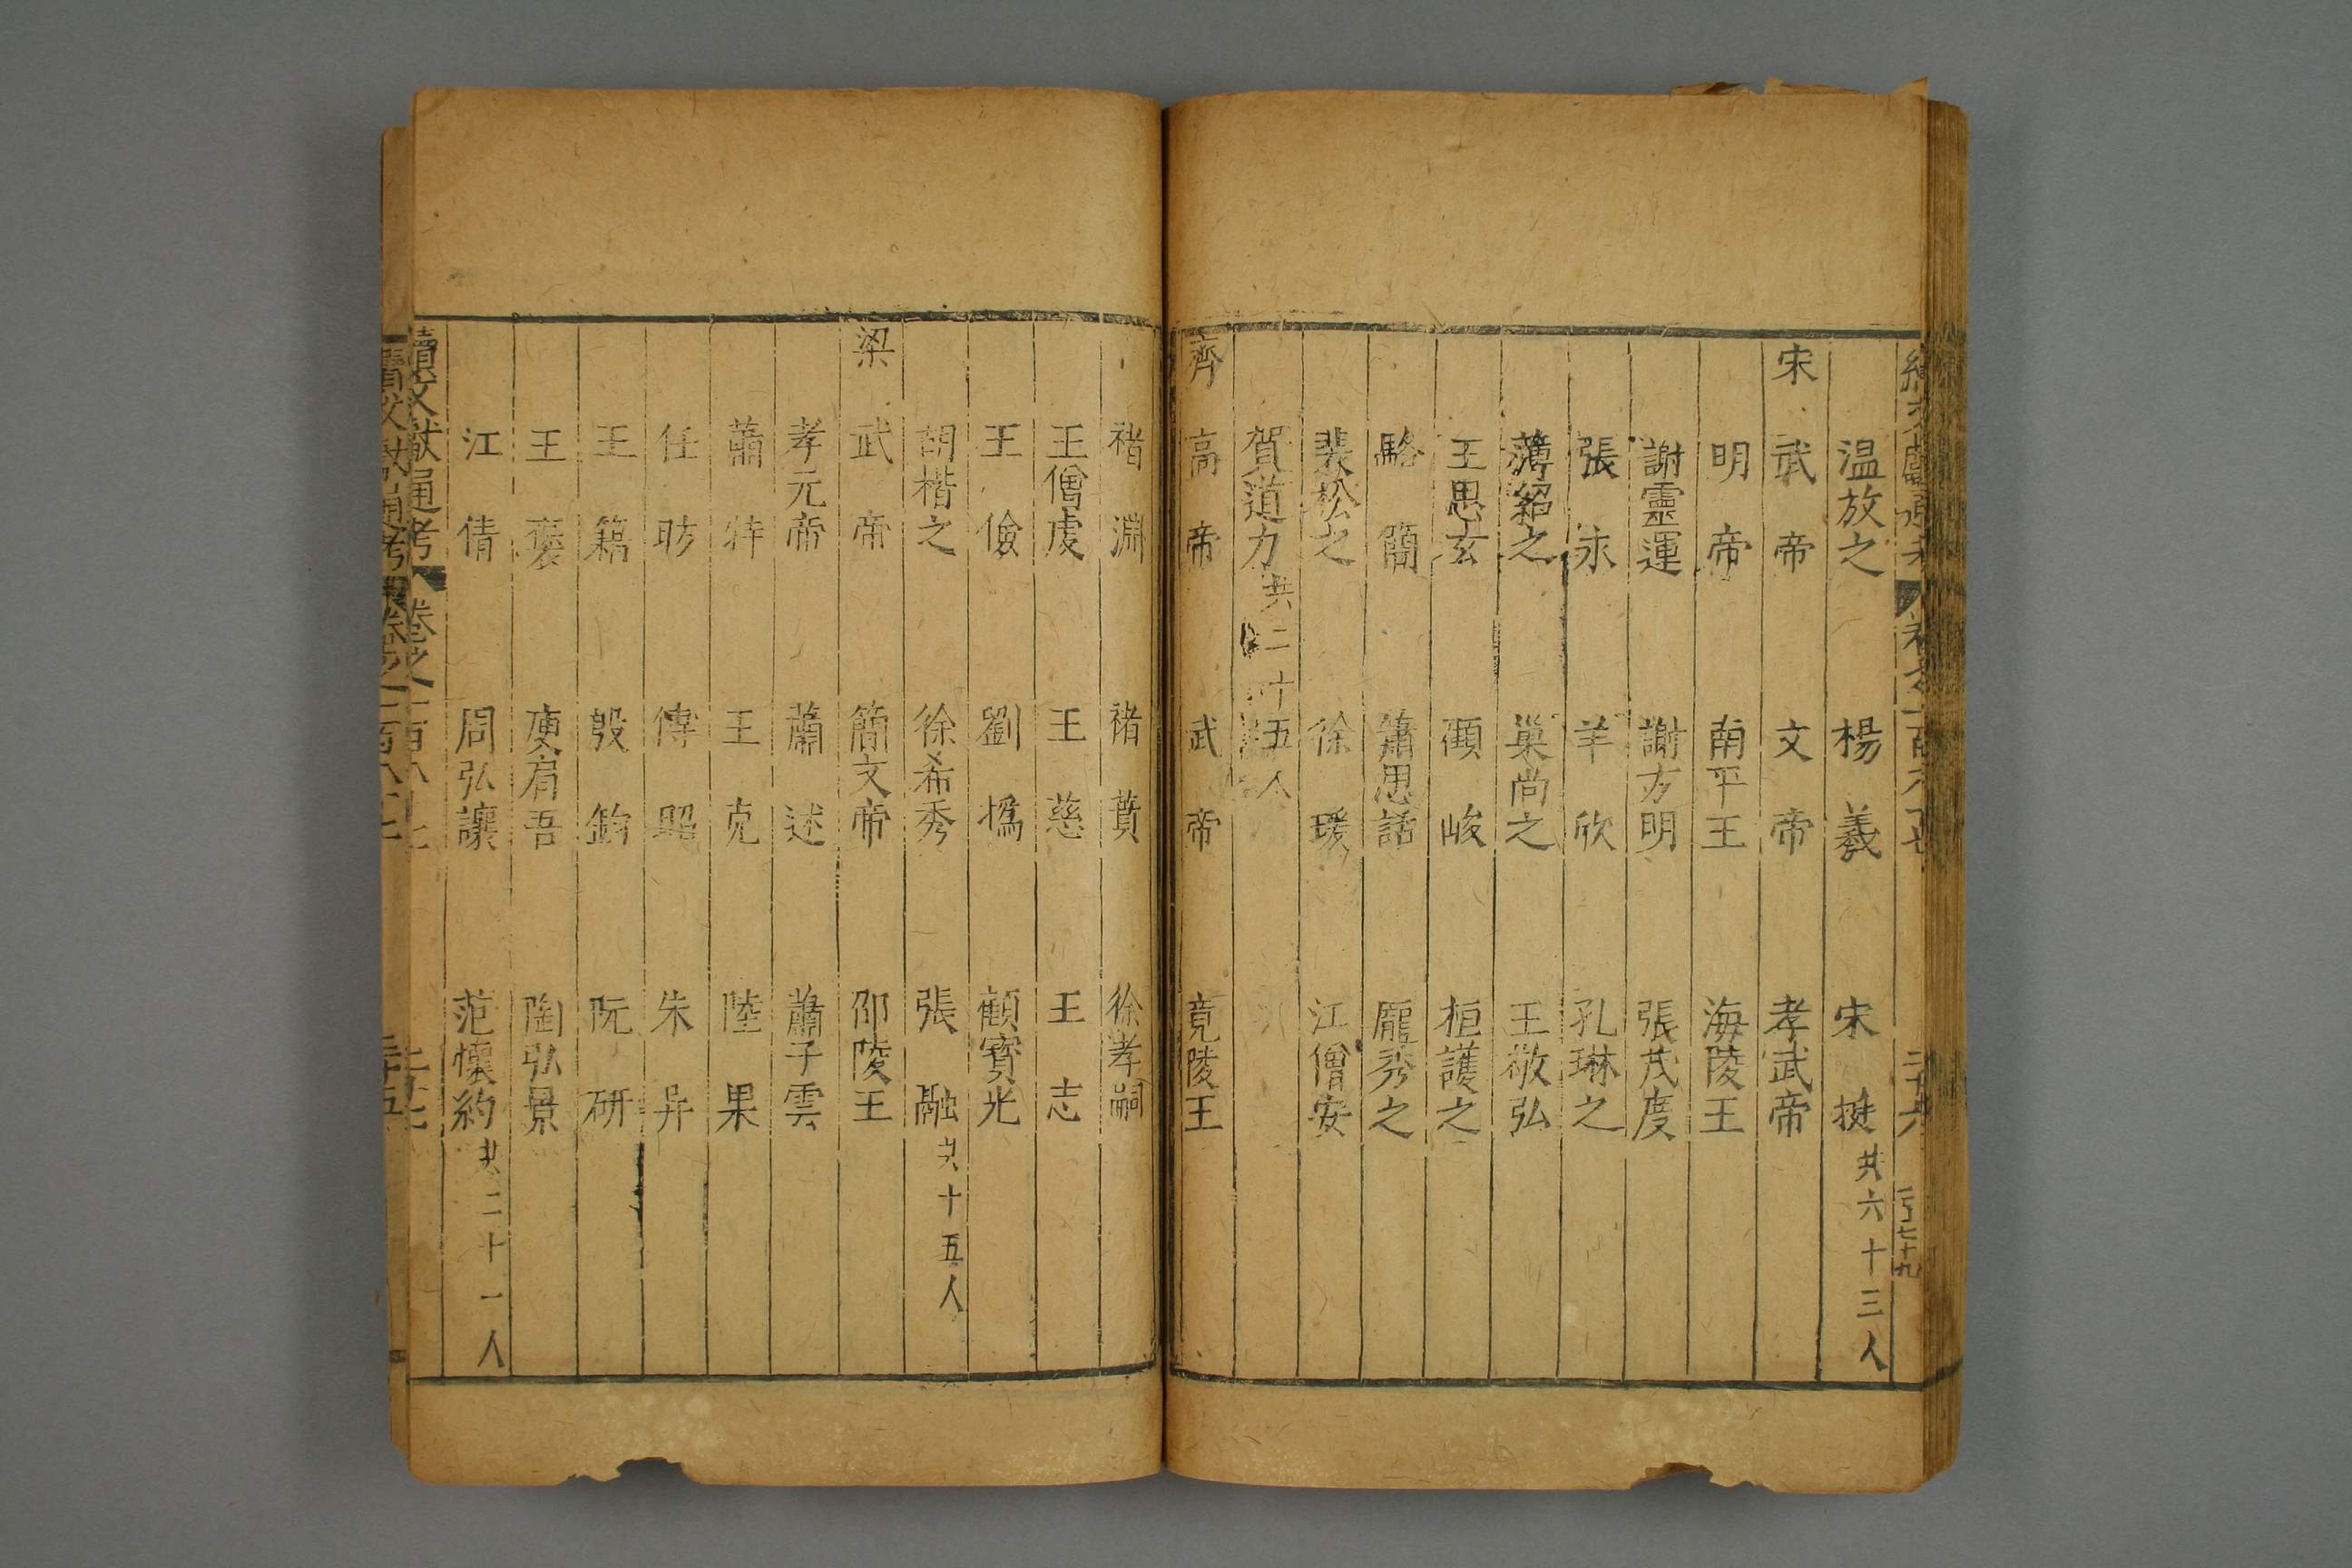 温放之 楊羲 宋挺 共六十三人
宋 武帝 文帝 孝武帝
明帝 南平王 海陵王
謝靈運 謝方明 張茂度
張永 羊欣 孔琳之
薄紹之 巢尚之 王敬弘
王思玄 顧峻 桓護之
駱簡 蕭思話 龎秀之
裴松之 徐瑗 江僧安
賀道力 共二十五人
齊 高帝 武帝 竟陵王
褚淵 褚賁 徐孝嗣
王僧虔 王慈 王志
王儉 劉撝 顧寳光
胡楷之 徐希秀 張融 共十五人
梁 武帝 簡文帝 邵陵王
孝元帝 蕭述 蕭子雲
蕭特 王克 陸果
任昉 傅昭 朱异
王籍 殷鈞 阮研
王褒 庾肩吾 陶弘景
江倩 周弘讓 范懷約 共二十一人
續文獻通考 卷之一百八十七